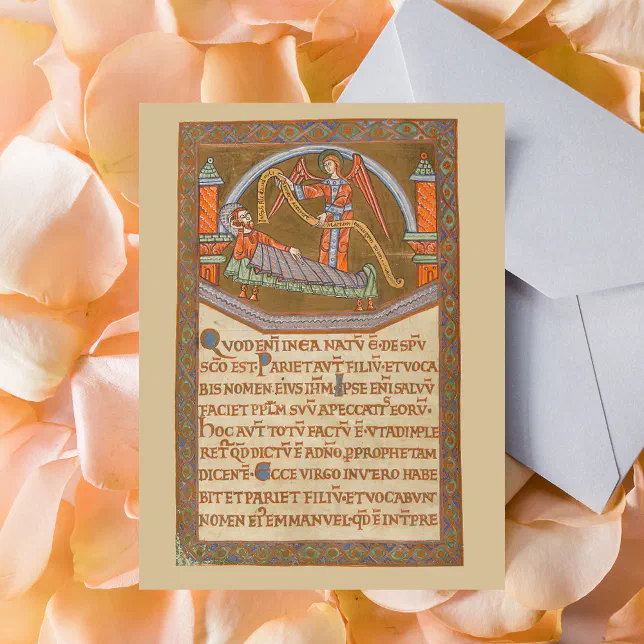 QUOD ENĪ IN EA NATŪ Ē · DE SPŪ
SC̄O EST · PARIET AUT̄ FILIŪ · ET VOCA
BIS NOMEN · EIUS IHM̄ · IPSE ENĪ SALVŪ
FACIET PPL̄M SUŪ A PECCATIS EORŪ ·
HOC AUT̄ TOTŪ FACTŪ Ē · UT ADIMPLE
RET · QD̄ DICTŪ Ē A DN̄O, P PROPHETAM
DICENTĒ · ECCE VIRGO IN UTERO HABE
BIT ET PARIET FILIŪ · ET VOCABUNT
NOMEN EI EMMANUEL · QD̄ Ē INT̄PRE